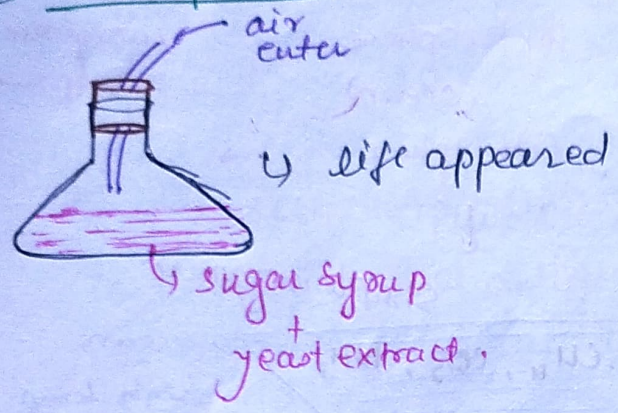 air
enter
↳ life appeared
↳ sugar syrup
+
yeast extract.